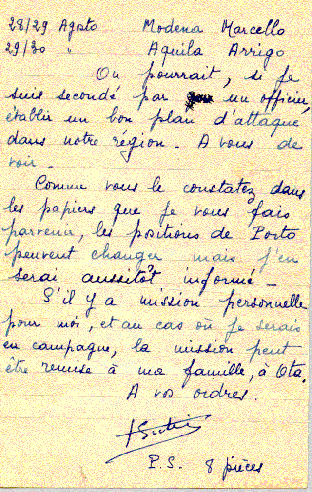 28/29 Agsto Modena Marcello
29/30 " Aquila Arrigo
On pourrait, si je
suis secondé par un officier,
établir un bon plan d'attaque
dans notre région. A vous de
voir.
Comme vous le constatez dans
les papiers que je vous fais
parvenir, les positions de Porto
peuvent changer mais j'en
serai aussitôt informé -
S'il y a mission personnelle
pour moi, et au cas où je serais
en campagne, la mission peut
être remise à ma famille, à Ota.
A vos ordres.
P.S. 8 pièces